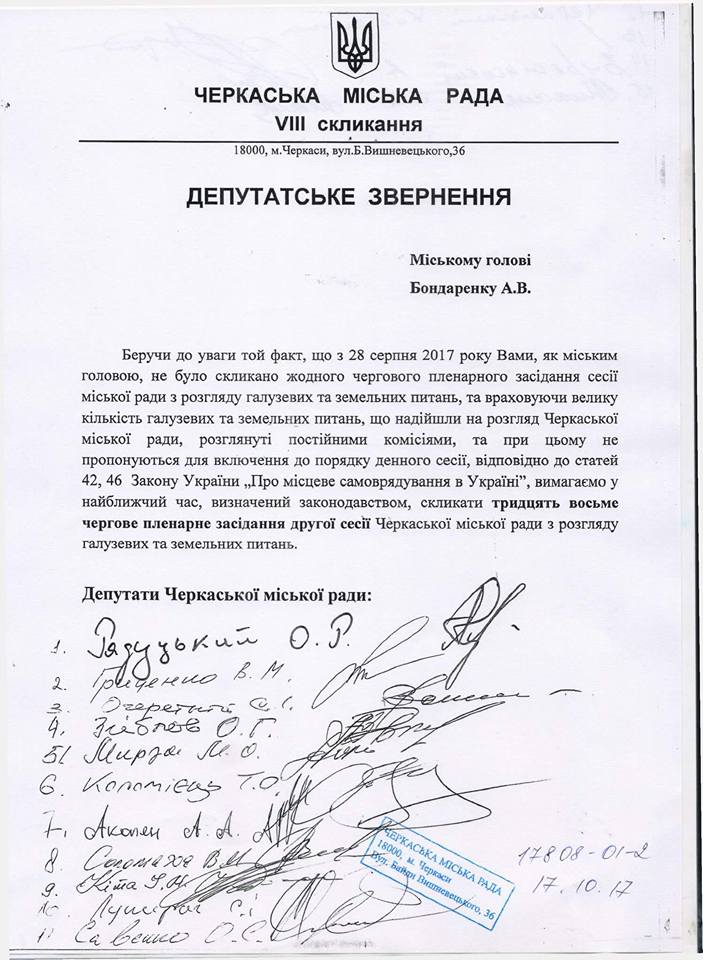 ЧЕРКАСЬКА МІСЬКА РАДА
VIII скликання
18000, м.Черкаси, вул.Б.Вишневецького,36
ДЕПУТАТСЬКЕ ЗВЕРНЕННЯ
Міському голові
Бондаренку А.В.
Беручи до уваги той факт, що з 28 серпня 2017 року Вами, як міським
головою, не було скликано жодного чергового пленарного засідання сесії
міської ради з розгляду галузевих та земельних питань, та враховуючи велику
кількість галузевих та земельних питань, що надійшли на розгляд Черкаської
міської ради, розглянуті постійними комісіями, та при цьому не
пропонуються для включення до порядку денного сесії, відповідно до статей
42, 46 Закону України „Про місцеве самоврядування в Україні”, вимагаємо у
найближчий час, визначений законодавством, скликати тридцять восьме
чергове пленарне засідання другої сесії Черкаської міської ради з розгляду
галузевих та земельних питань.
Депутати Черкаської міської ради:
1. Радуцький О.Р.
2. Гриценко В.М.
3.
4. О.Г.
5. М.О.
6. Коломієць Т.О.
7. Акопян А.А.
8. Соломаха В.М.
9.
10.
11. Савенко О.С.
ЧЕРКАСЬКА МІСЬКА РАДА
18000, м. Черкаси
Вул. Байди Вишневецького, 36
17808-01-2
17.10.17